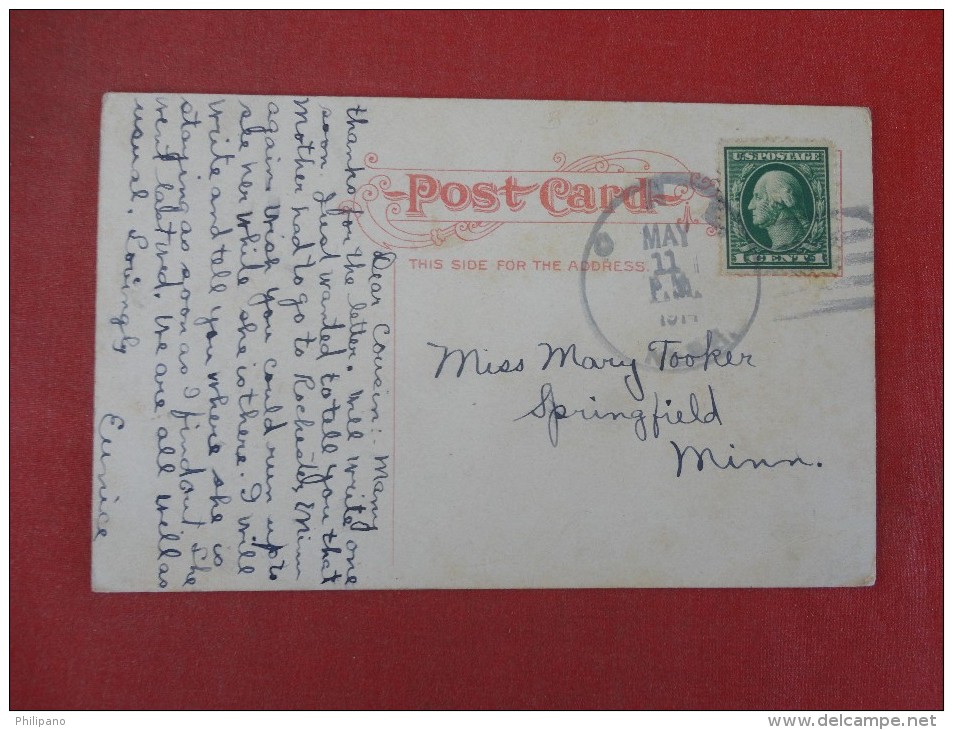 Post Card
THIS SIDE FOR THE ADDRESS.
U.S. POSTAGE
1 CENT 1
MAY
11
P.M.
Miss Mary Tooker
Springfield
Minn.
Dear Cousin:- Many
thanks for the letter. Will write one
soon. Just wanted to tell you that
Mother had to go to Rochester, Minn
again. Wish you could run up to
see her while she is there. I will
write and tell you where she is
staying as soon as I find out. She
went latured. We are all well as
usual. Lovingly
Eunice
Philipano
www.delcampe.net